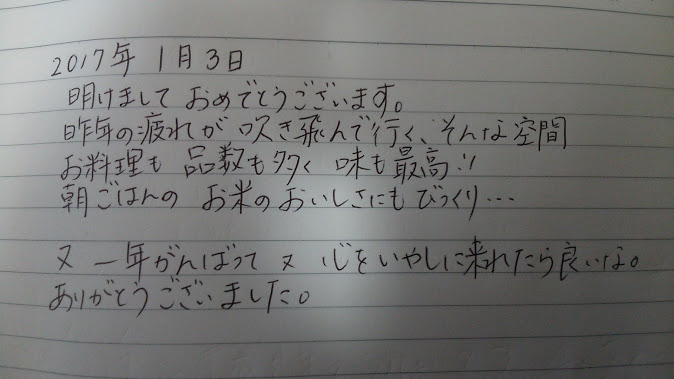 2017年 1月3日
明けまして おめでとうございます。
昨年の疲れが 吹き飛んで行く、そんな空間
お料理も 品数も多く 味も最高!!
朝ごはんの お米のおいしさにもびっくり…
又 一年がんばって 又 心をいやしに来れたら良いな。
ありがとうございました。